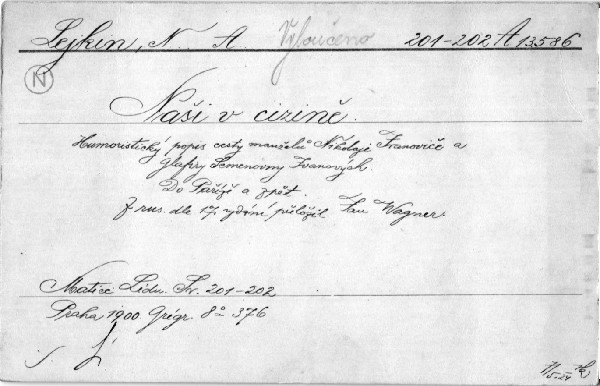 Lejkin, N. A. Vyloučeno 201-202 A 13586
N
Naši v cizině.
Humoristický popis cesty manželů Nikolaje Ivanoviče a
Glafiry Semenovny Ivanových.
Do Paříže a zpět.
Z rus. dle 17. vydání přeložil Jan Wagner.
Matice Lidu. Sv. 201-202
Praha 1900. Grégr. 8° 376